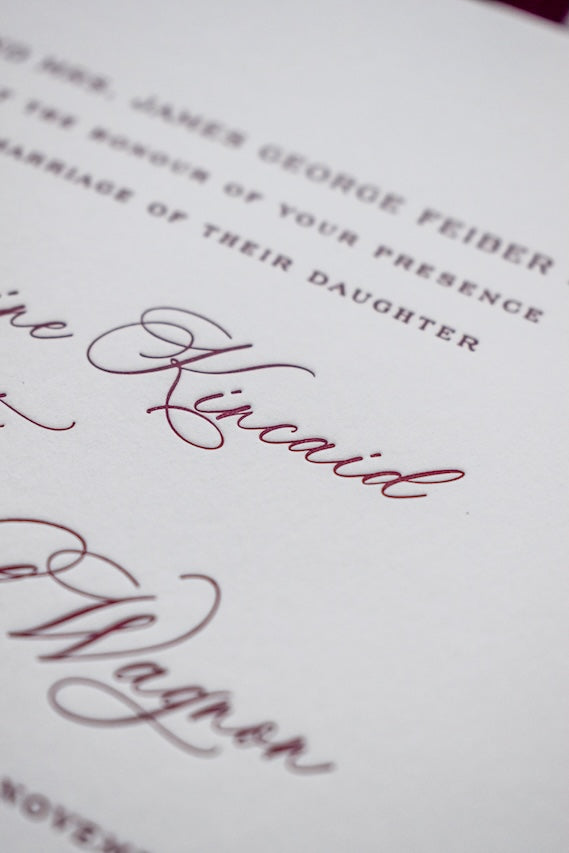 MRS. JAMES GEORGE FEIBER
THE HONOUR OF YOUR PRESENCE
MARRIAGE OF THEIR DAUGHTER
Kincaid
Wagnon